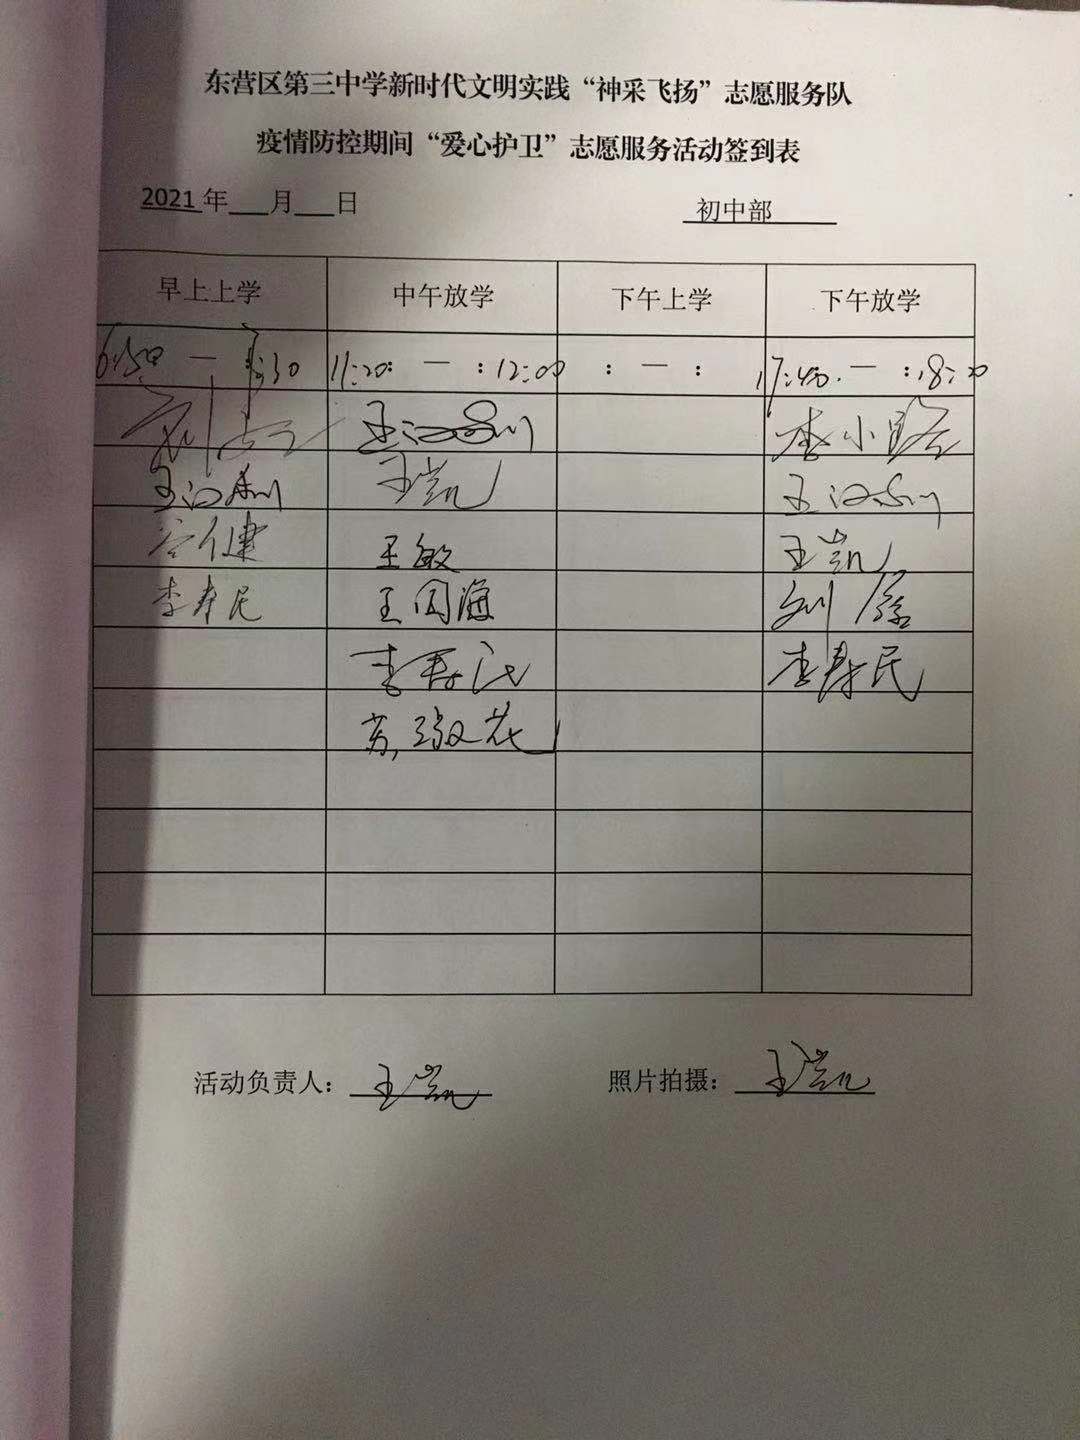 东营区第三中学新时代文明实践“神采飞扬”志愿服务队
疫情防控期间“爱心护卫”志愿服务活动签到表
2021 年___月___日 初中部
早上上学 中午放学 下午上学 下午放学
6:50 — 7:30 11:20: — :12:00 : — : 17:40. — :18:20
李小路
王凯
谷健 王敏 王凯
李寿民 王国海 刘
李寿民 李寿民
苏 花
活动负责人： 王凯 照片拍摄： 王凯